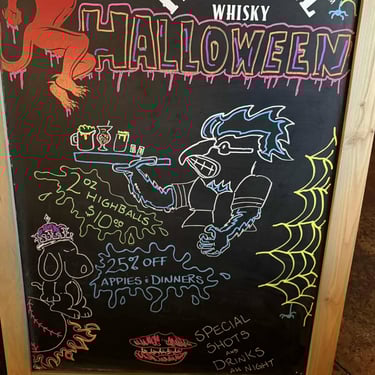 WHISKY
HALLOWEEN
2 OZ
HIGHBALLS
$10.00
25% OFF
APPIES & DINNERS
SPECIAL
SHOTS
AND
DRINKS
ALL NIGHT